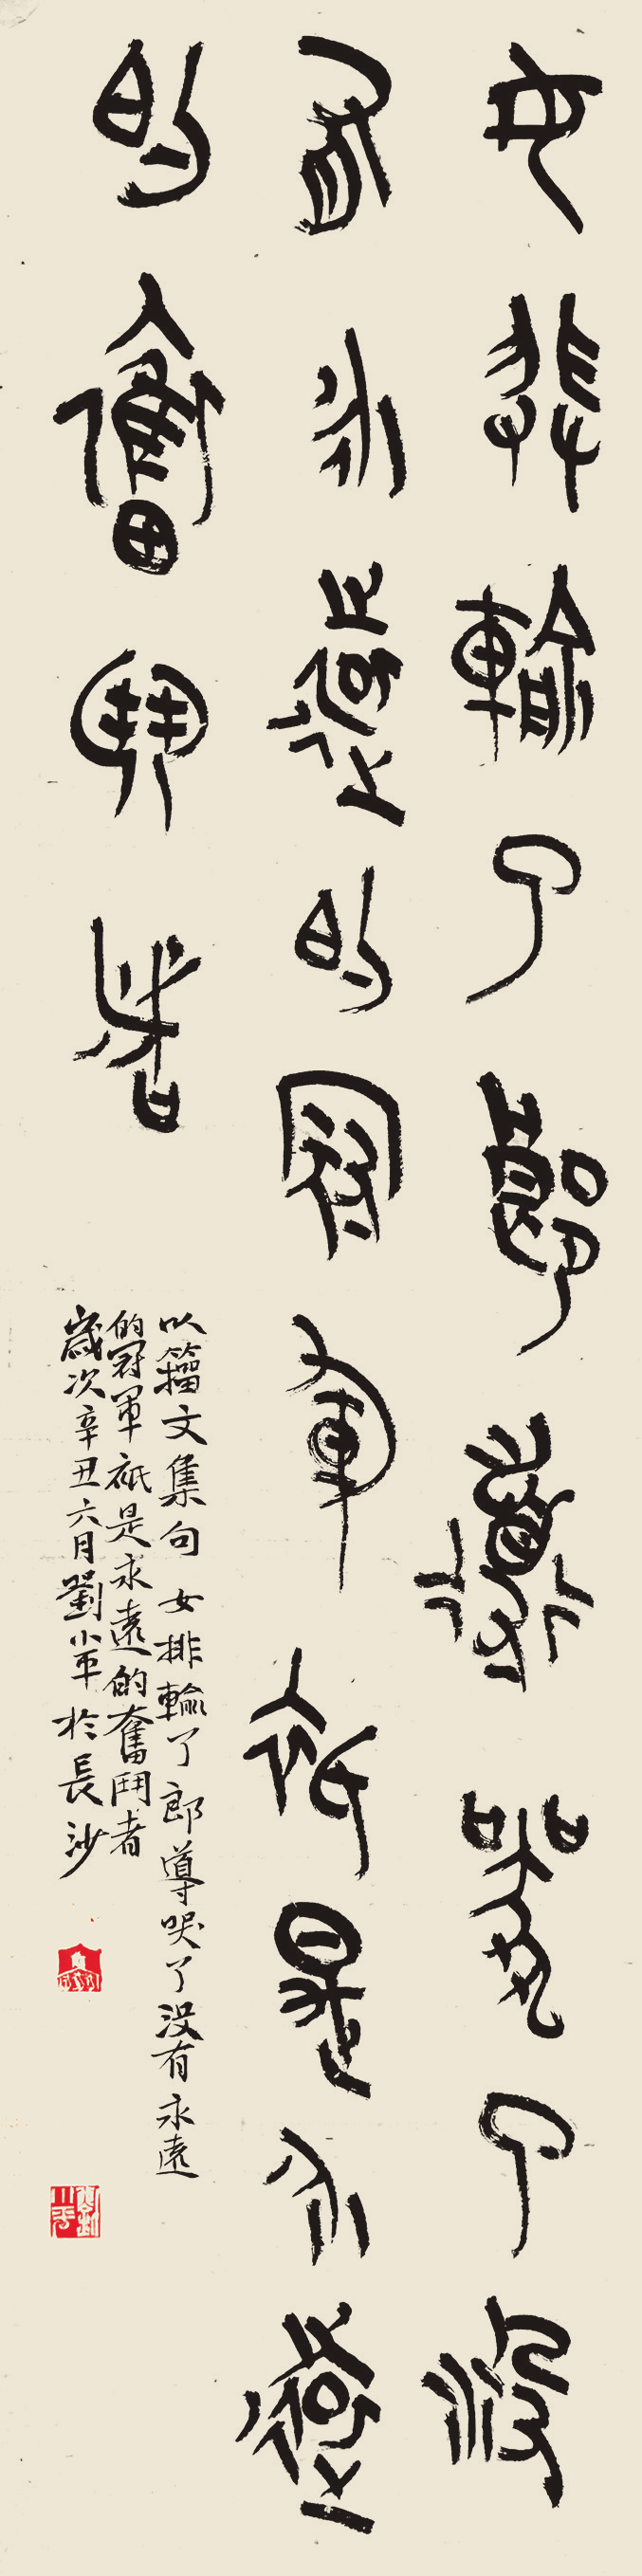 女排輸了郎導哭了没
有永遠的冠軍祇是永遠
的奮鬥者
以籀文集句女排輸了郎導哭了没有永遠
的冠軍祇是永遠的奮鬥者
歲次辛丑六月劉小平於長沙